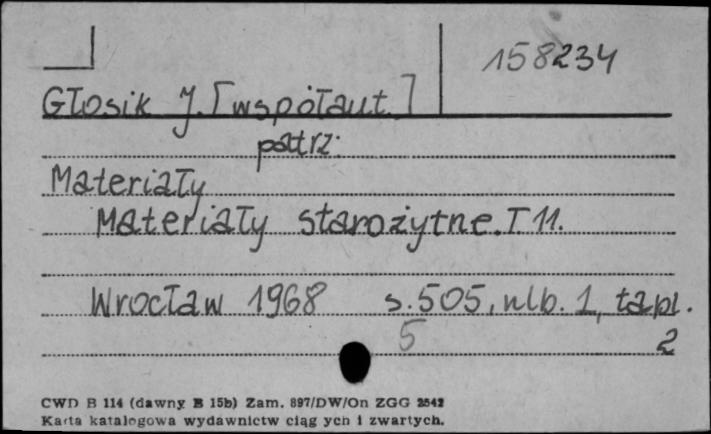 158234
Głosik J. [współaut.]
patrz:
Materiały
Materiały starożytne. T 11.
Wrocław 1968 s. 505, nlb. 1, tabl.
5 2
CWD B 114 (dawny B 15b) Zam. 897/DW/On ZGG 2542
Karta katalogowa wydawnictw ciąg ych i zwartych.